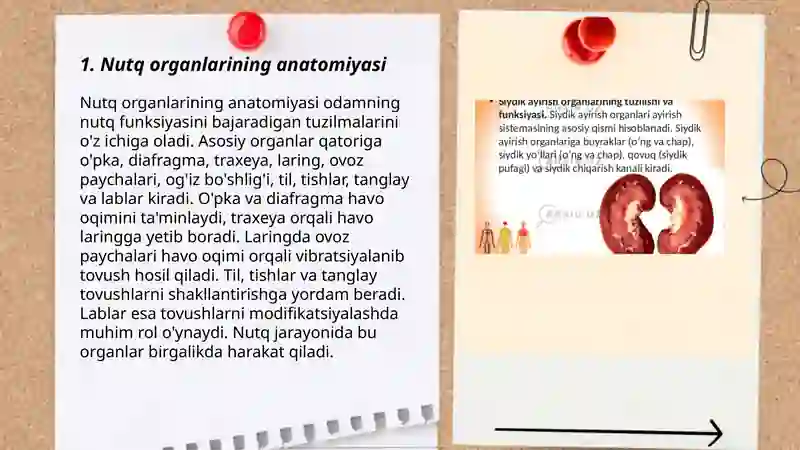 1. Nutq organlarining anatomiyasi
Nutq organlarining anatomiyasi odamning
nutq funksiyasini bajaradigan tuzilmalarini
o'z ichiga oladi. Asosiy organlar qatoriga
o'pka, diafragma, traxeya, laring, ovoz
paychalari, og'iz bo'shlig'i, til, tishlar, tanglay
va lablar kiradi. O'pka va diafragma havo
oqimini ta'minlaydi, traxeya orqali havo
laringga yetib boradi. Laringda ovoz
paychalari havo oqimi orqali vibratsiyalanib
tovush hosil qiladi. Til, tishlar va tanglay
tovushlarni shakllantirishga yordam beradi.
Lablar esa tovushlarni modifikatsiyalashda
muhim rol o'ynaydi. Nutq jarayonida bu
organlar birgalikda harakat qiladi.
• Siydik ayirish organlarining tuzilishi va
funksiyasi. Siydik ayirish organlari ayirish
sistemasining asosiy qismi hisoblanadi. Siydik
ayirish organlariga buyraklar (o'ng va chap),
siydik yo'llari (o'ng va chap), qovuq (siydik
pufagi) va siydik chiqarish kanali kiradi.